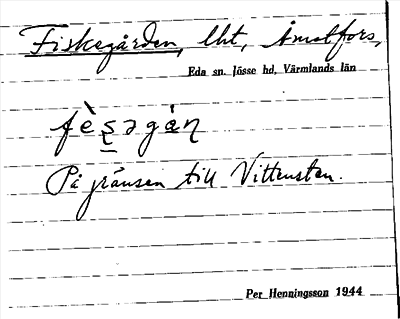 Fiskegården, lht, Åmotfors,
Eda sn. Jösse hd, Värmlands län
fè̀s̱əgán
På gränsen till Vittensten.
Per Henningsson 1944